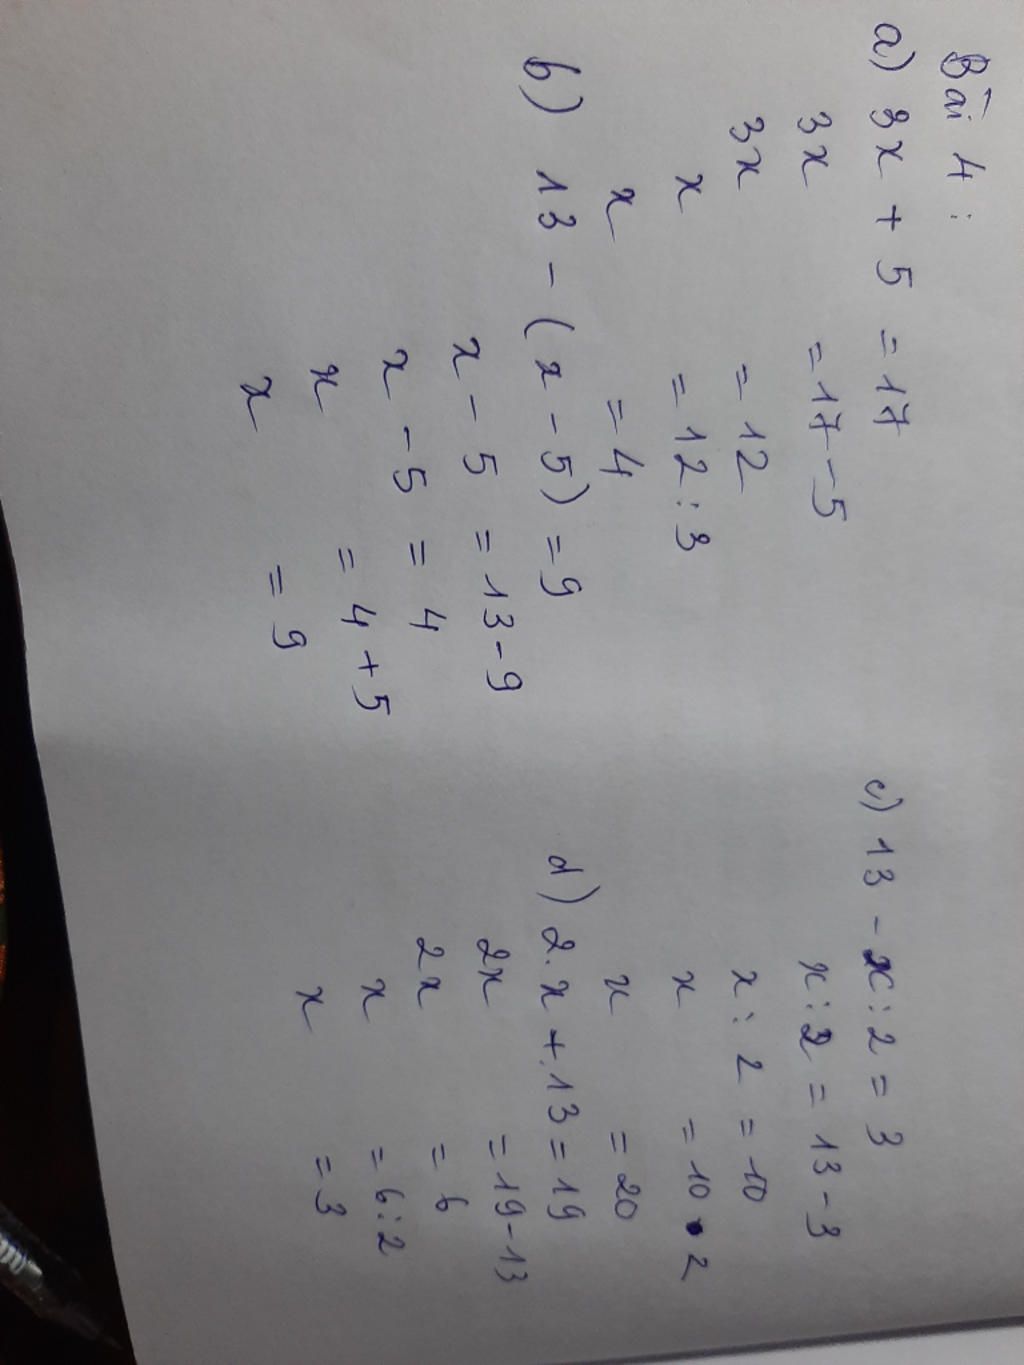 Bài 4:
a) 3x + 5 = 17
3x = 17 - 5
3x = 12
x = 12 : 3
x = 4
b) 13 - (x - 5) = 9
x - 5 = 13 - 9
x - 5 = 4
x = 4 + 5
x = 9
c) 13 - x : 2 = 3
x : 2 = 13 - 3
x : 2 = 10
x = 10 . 2
x = 20
d) 2. x + 13 = 19
2x = 19 - 13
2x = 6
x = 6 : 2
x = 3